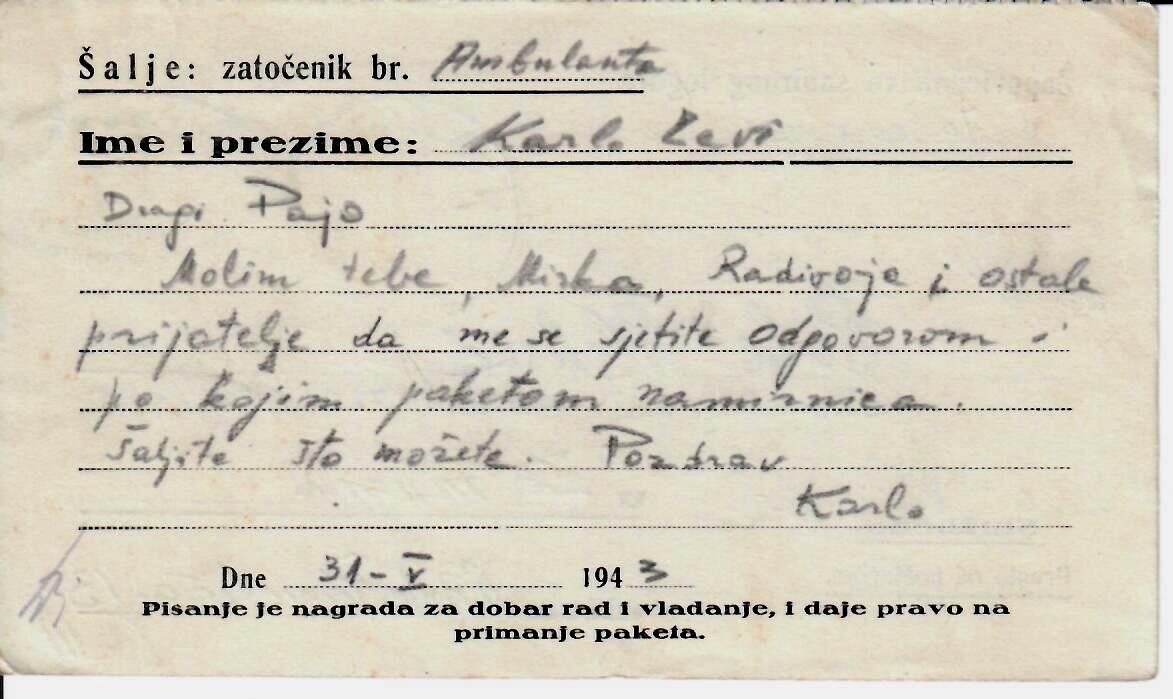 Šalje: zatočenik br. Ambulanta
Ime i prezime: Karlo Levi
Dragi Pajo
Molim tebe, Mirka, Radivoje i ostale
prijatelje da me se sjetite odgovorom i
po kojim paketom namirnica.
Šaljite što možete. Pozdrav
Karlo
Dne 31-V 1943
Pisanje je nagrada za dobar rad i vladanje, i daje pravo na
primanje paketa.